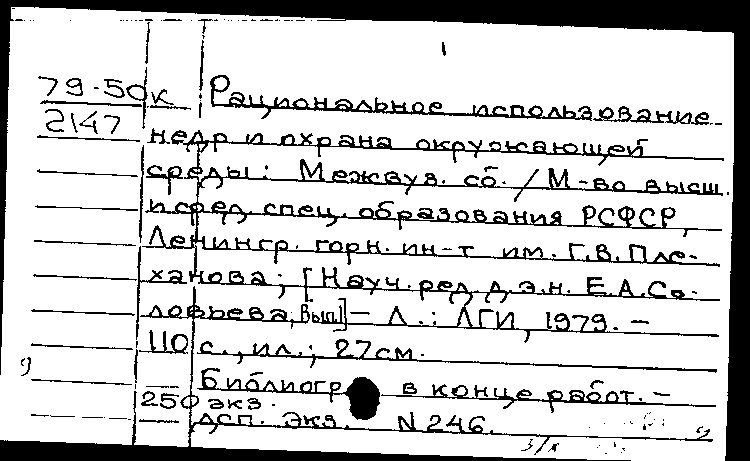 79-50к Рациональное использование
2147 недр и охрана окружающей
среды: Межвуз. сб. / М-во высш.
и сред. спец. образования РСФСР,
Ленингр. горн. ин-т им. Г.В. Пле-
ханова; [Науч. ред. д.э.н. Е.А. Со-
ловьева, Вып.] - Л.: ЛГИ, 1979. -
110 с., ил.; 27см.
Библиогр в конце работ. -
250 экз.
дсп. Экз. N 246.